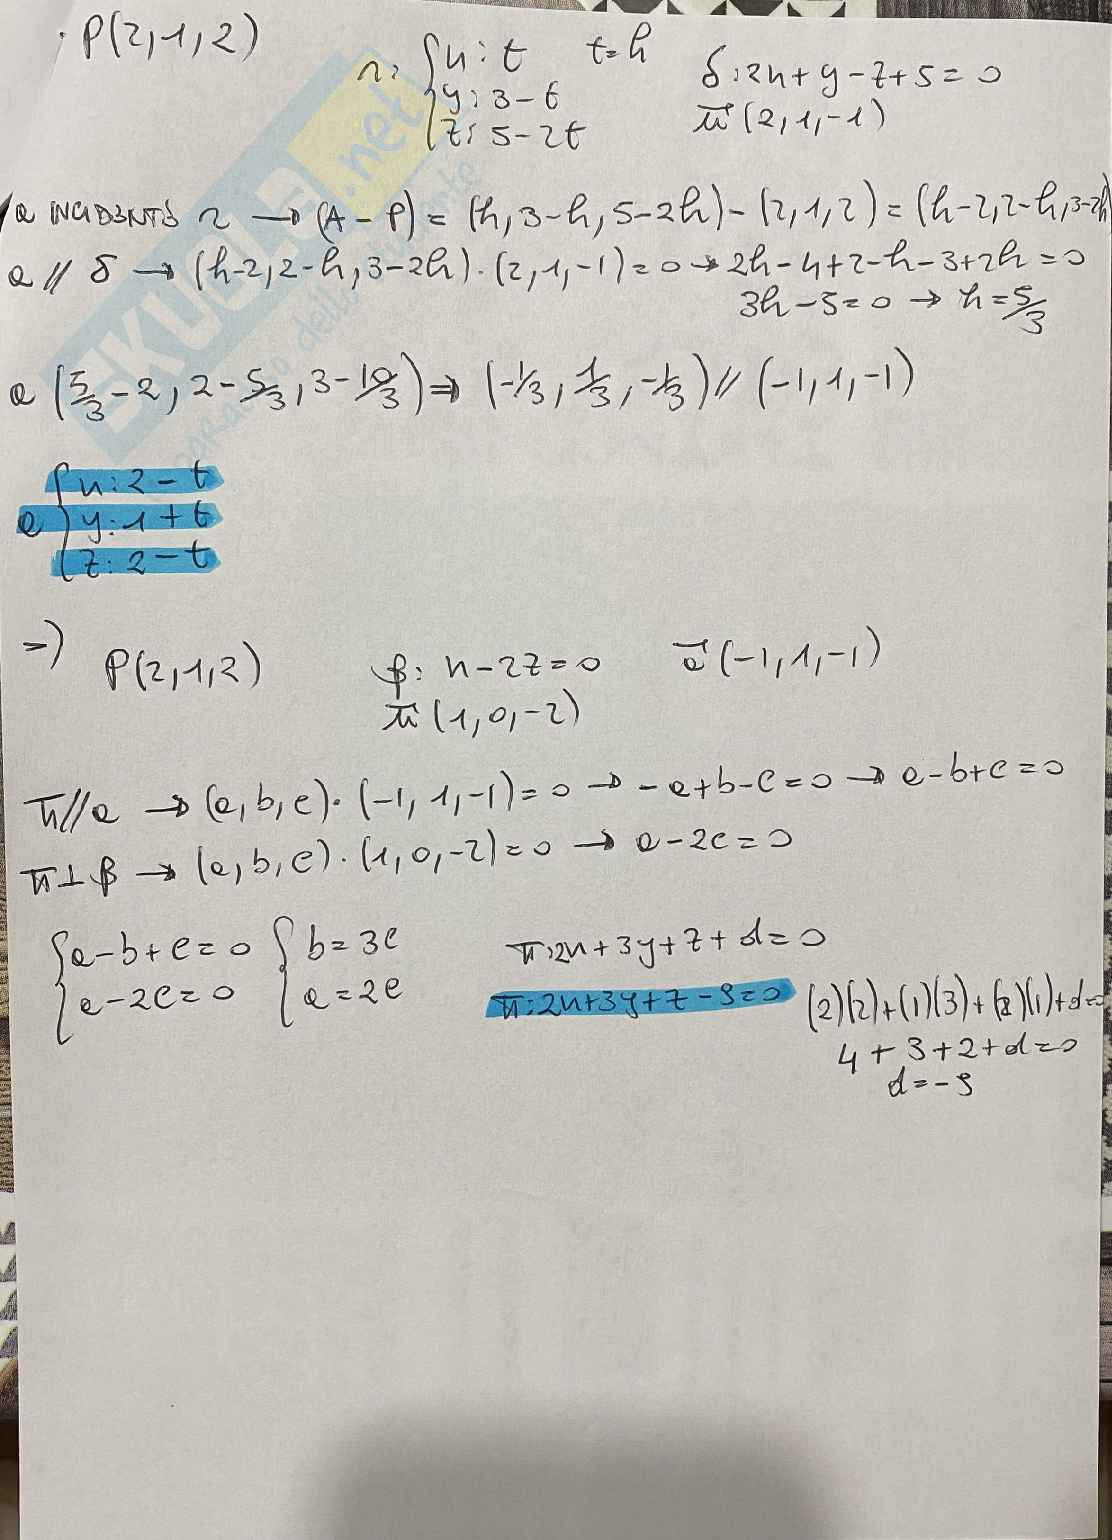 · P(2,1,2)
r: { x: t    t=h    δ: 2x+y-z+5=0
y: 3-t    n⃗ (2,1,-1)
z: 5-2t
a INCIDENTE r → (A-P) = (h, 3-h, 5-2h) - (2,1,2) = (h-2, 2-h, 3-2h)
a // δ → (h-2, 2-h, 3-2h) · (2,1,-1) = 0 → 2h-4+2-h-3+2h=0
3h-5=0 → h=5/3
a (5/3-2, 2-5/3, 3-10/3) ⇒ (-1/3, 1/3, -1/3) // (-1,1,-1)
a { x: 2-t
y: 1+t
z: 2-t
=)
P(2,1,2)    β: x-2z=0    a⃗ (-1,1,-1)
n⃗ (1,0,-2)
π//a → (a,b,c)·(-1,1,-1)=0 → -a+b-c=0 → a-b+c=0
π⊥β → (a,b,c)·(1,0,-2)=0 → a-2c=0
{ a-b+c=0  { b=3c    π: 2x+3y+z+d=0
a-2c=0    a=2c    π: 2x+3y+z-9=0    (2)(2)+(1)(3)+(2)(1)+d=0
4+3+2+d=0
d=-9
SKUOLA.net